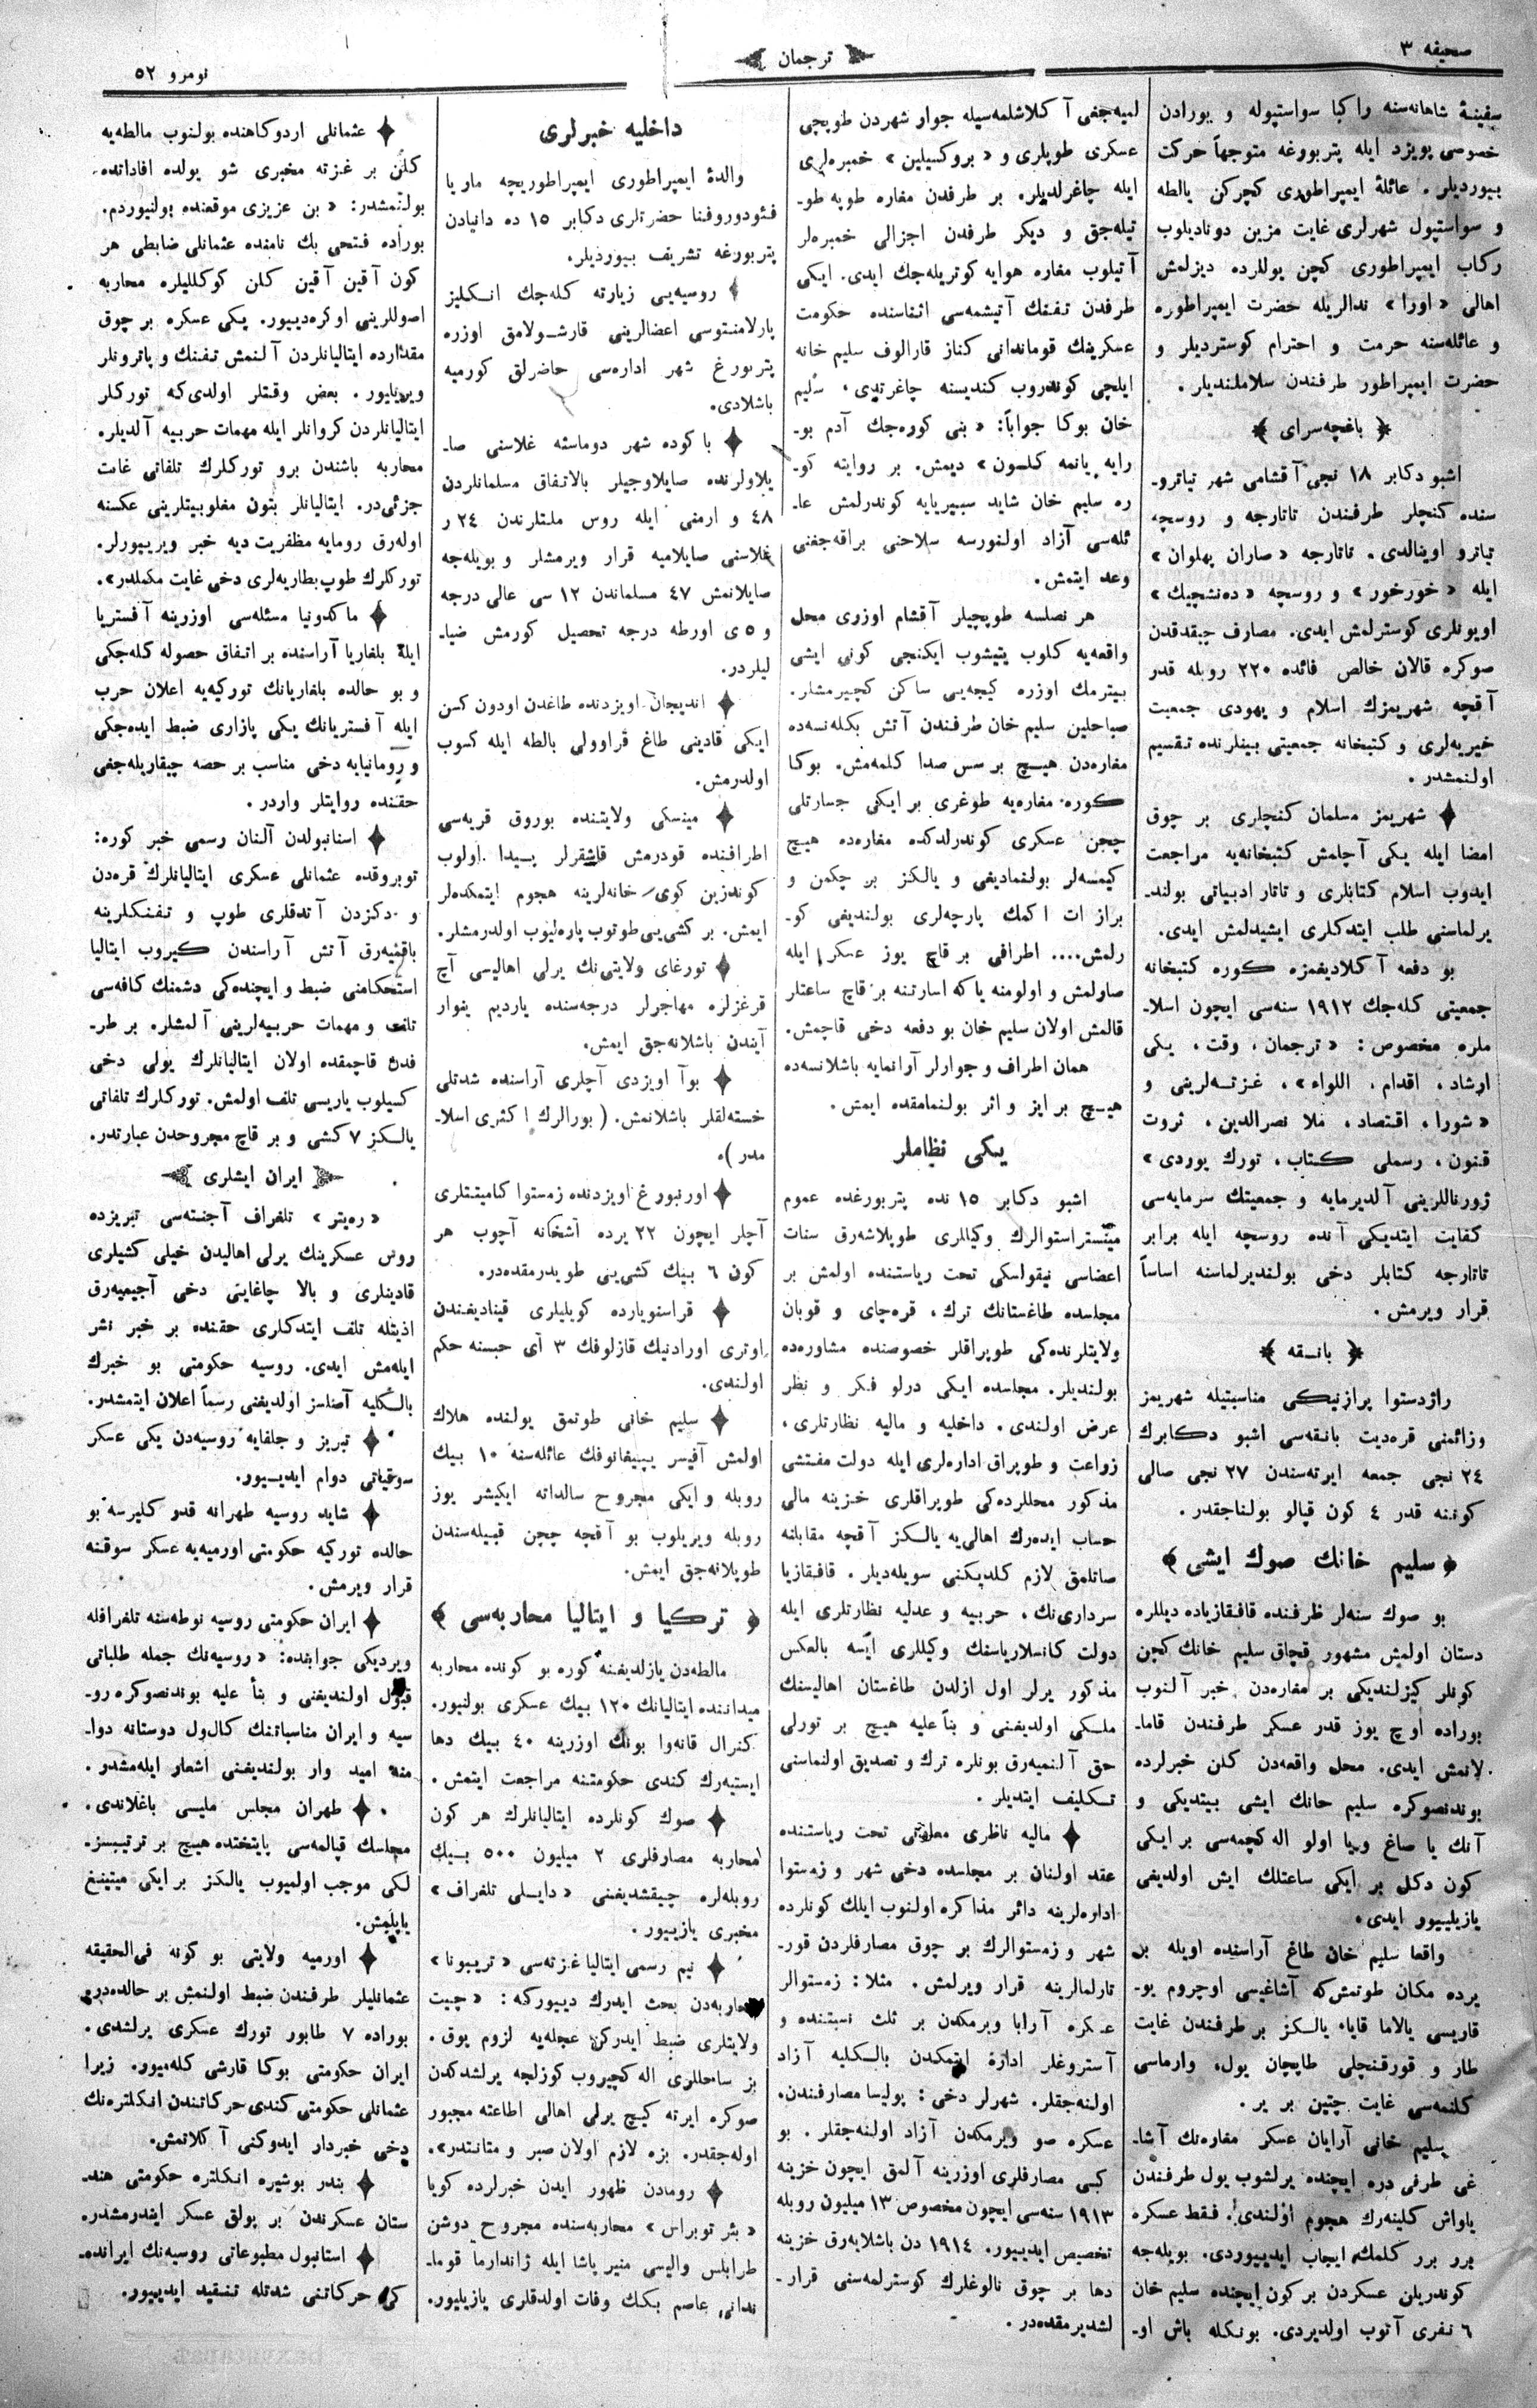 صحیفه ۳
ترجمان
نومرو ۵۲
سفینهٔ شاهانه‌سنه راکبا سواستپوله و بورادن
خصوصی پویزد ایله پتربورغه متوجهاً حرکت
بیوردیلر. عائلهٔ ایمپراطوری کچرکن یالطه
و سواستپول شهرلری غایت مزین دونادیلوب
رکاب ایمپراطوری کچن یوللرده دیزلمش
اهالی «اورا» ندالریله حضرت ایمپراطوره
و عائله‌سنه حرمت و احترام کوستردیلر و
حضرت ایمپراطور طرفندن سلاملندیلر.
﴿ باغچه‌سرای ﴾
اشبو دکابر ۱۸ نجی آقشامی شهر تیاترو-
سنده کنچلر طرفندن تاتارجه و روسچه
تیاترو اوینالدی. تاتارجه «صاران پهلوان»
ایله «خورخور» و روسچه «ده‌نشچیك»
اویونلری کوسترلمش ایدی. مصارف چیقدقدن
صوکره قالان خالص فائده ۲۲۰ روبله قدر
آقچه شهریمزك اسلام و یهودی جمعیت
خیریه‌لری و کتبخانه جمعیتی بینلرنده تقسیم
اولنمشدر.
شهریمز مسلمان کنچلری بر چوق
امضا ایله یکی آچلمش کتبخانه‌یه مراجعت
ایدوب اسلام کتابلری و تاتار ادبیاتی بولند-
یرلماسنی طلب ایتدکلری ایشیدلمش ایدی.
بو دفعه آکلادیغمزه کوره کتبخانه
جمعیتی کله‌جك ۱۹۱۲ سنه‌سی ایچون اسلا-
ملره مخصوص: «ترجمان، وقت، یکی
ارشاد، اقدام، اللواء»، غزته‌لرینی و
«شورا، اقتصاد، ملا نصرالدین، ثروت
فنون، رسملی کتاب، تورك یوردی»
ژورناللرینی آلدیرمایه و جمعیتك سرمایه‌سی
کفایت ایتدیکی آنده روسچه ایله برابر
تاتارجه کتابلر دخی بولندیرلماسنه اساساً
قرار ویرمش.
﴿ بانقه ﴾
راژدستوا پرازنیکی مناسبتیله شهریمز
وزائمنی قره‌دیت بانقه‌سی اشبو دکابرك
۲۴ نجی جمعه ایرته‌سندن ۲۷ نجی صالی
کوننه قدر ۴ کون قپالو بولناجقدر.
﴿ سلیم خانك صوك ایشی ﴾
بو صوك سنه‌لر ظرفنده قافقازیاده دیللره
دستان اولمش مشهور قچاق سلیم خانك کچن
کونلر کیزلندیکی بر مغاره‌دن خبر آلنوب
بوراده اوچ یوز قدر عسکر طرفندن قاما-
لانمش ایدی. محل واقعه‌دن کلن خبرلرده
بوندنصوکره سلیم خانك ایشی بیتدیکی و
آنك یا صاغ ویا اولو اله کچمه‌سی بر ایکی
کون دکل بر ایکی ساعتلك ایش اولدیغی
یازیلییور ایدی.
واقعا سلیم خان طاغ آراسنده اویله بر
یرده مکان طوتمش‌که آشاغیسی اوچروم یو-
قاریسی یالاما قایا، یالکز بر طرفندن غایت
طار و قورقنچلی طاپچان یول، وارماسی
کلنمه‌سی غایت چتین بر یر.
سلیم خانی آرایان عسکر مغاره‌نك آشا-
غی طرفی دره ایچنده یرلشوب یول طرفندن
یاواش کلینه‌رك هجوم اولندی. فقط عسکره
برر برر کلمك ایجاب ایدییوردی. بویله‌جه
کوندریلن عسکردن بر کون ایچنده سلیم خان
۶ نفری آتوب اولدیردی. بونکله باش او-
لمیه‌جغی آکلاشلمه‌سیله جوار شهردن طوپچی
عسکری طوپلری و «بروکسیلین» خمبره‌لری
ایله چاغرلدیلر. بر طرفدن مغاره طوپه طو-
تیله‌جق و دیکر طرفدن اجزالی خمبره‌لر
آتیلوب مغاره هوایه کوتریله‌جك ایدی. ایکی
طرفدن تفنك آتیشمه‌سی اثناسنده حکومت
عسکرینك قوماندانی کناز قارالوف سلیم خانه
ایلچی کوندروب کندیسنه چاغرتدی، سلیم
خان بوکا جواباً: «بنی کوره‌جك آدم بو-
رایه یانمه کلسون» دیمش. بر روایته کو-
ره سلیم خان شاید سیبریایه کوندرلمش عا-
ئله‌سی آزاد اولنورسه سلاحنی براقه‌جغنی
وعد ایتمش.
هر نصلسه طوپچیلر آقشام اوزری محل
واقعه‌یه کلوب یتیشوب ایکنجی کونی ایشی
بیترمك اوزره کیچه‌یی ساکن کچیرمشلر.
صباحلین سلیم خان طرفندن آتش بکله‌نسه‌ده
مغاره‌دن هیچ بر سس صدا کلمه‌مش. بوکا
کوره مغاره‌یه طوغری بر ایکی جسارتلی
چچن عسکری کوندرلدکده مغاره‌ده هیچ
کیمسه‌لر بولنمادیغی و یالکز بر چکمن و
براز ات اکمك پارچه‌لری بولندیغی کو-
رلمش.... اطرافی بر قاچ یوز عسکر ایله
صارلمش و اولومنه یاکه اسارتنه بر قاچ ساعتلر
قالمش اولان سلیم خان بو دفعه دخی قاچمش.
همان اطراف و جوارلر آرانمایه باشلانسه‌ده
هیچ بر ایز و اثر بولنمامقده ایمش.
یکی نظاملر
اشبو دکابر ۱۵ نده پتربورغده عموم
مینستراستوالرك وکیللری طوپلاشه‌رق سنات
اعضاسی نیقولسکی تحت ریاستنده اولمش بر
مجلسده طاغستانك ترك، قره‌چای و قوبان
ولایتلرنده‌کی طوپراقلر خصوصنده مشاوره‌ده
بولندیلر. مجلسده ایکی درلو فکر و نظر
عرض اولندی. داخلیه و مالیه نظارتلری،
زراعت و طوپراق اداره‌لری ایله دولت مفتشی
مذکور محللرده‌کی طوپراقلری خزینه مالی
حساب ایده‌رك اهالی‌یه یالکز آقچه مقابلنه
صاتلمق لازم کلدیکنی سویله‌دیلر. قافقازیا
سرداری‌نك، حربیه و عدلیه نظارتلری ایله
دولت کانسلاریاسنك وکیللری ایسه بالعکس
مذکور یرلر اول ازلدن طاغستان اهالیسنك
ملکی اولدیغنی و بناً علیه هیچ بر تورلی
حق آلنمیه‌رق بونلره ترك و تصدیق اولنماسنی
تکلیف ایتدیلر.
مالیه ناظری معاونی تحت ریاستنده
عقد اولنان بر مجلسده دخی شهر و زمستوا
اداره‌لرینه دائر مذاکره اولنوب ایلك کونلرده
شهر و زمستوالرك بر چوق مصارفلردن قور-
تارلمالرینه قرار ویرلمش. مثلا: زمستوالر
عسکره آرابا ویرمکدن بر ثلث نسبتنده و
آستروغلر اداره ایتمکدن بالکلیه آزاد
اولنه‌جقلر. شهرلر دخی: پولیسا مصارفندن،
عسکره صو ویرمکدن آزاد اولنه‌جقلر. بو
کبی مصارفلری اوزرینه آلمق ایچون خزینه
۱۹۱۳ سنه‌سی ایچون مخصوص ۱۳ میلیون روبله
تخصیص ایدییور. ۱۹۱۴ دن باشلایه‌رق خزینه
دها بر چوق نالوغلرك کوسترلمه‌سنی قرار-
لشدیرمقده‌در.
داخلیه خبرلری
والدهٔ ایمپراطوری ایمپراطوریچه ماریا
فئودوروفنا حضرتلری دکابر ۱۵ ده دانیادن
پتربورغه تشریف بیوردیلر.
روسیه‌یی زیارته کله‌جك انکلیز
پارلامنتوسی اعضالرینی قارشولامق اوزره
پتربورغ شهر اداره‌سی حاضرلق کورمیه
باشلادی.
باکوده شهر دوماسنه غلاسنی صا-
یلاولرنده صایلاوجیلر بالاتفاق مسلمانلردن
۴۸ و ارمنی ایله روس ملتلرندن ۲۴ ر
غلاسنی صایلامیه قرار ویرمشلر و بویله‌جه
صایلانمش ۴۷ مسلماندن ۱۲ سی عالی درجه
و ۵ ی اورطه درجه تحصیل کورمش ضیا-
لیلردر.
اندیجان اویزدنده طاغدن اودون کسن
ایکی قادینی طاغ قراوولی بالطه ایله کسوب
اولدرمش.
مینسکی ولایتنده بوروق قریه‌سی
اطرافنده قودرمش قاشقرلر پیدا اولوب
کوندزین کوی خانه‌لرینه هجوم ایتمکده‌لر
ایمش. بر کشی‌یی طوتوب پاره‌لیوب اولدرمشلر.
تورغای ولایتی‌نك یرلی اهالیسی آچ
قرغزلره مهاجرلر درجه‌سنده یاردیم ینوار
آیندن باشلانه‌جق ایمش.
بوآ اویزدی آچلری آراسنده شدتلی
خسته‌لقلر باشلانمش. (بورالرك اکثری اسلا-
مدر).
اورنبورغ اویزدنده زمستوا کامیتتلری
آچلر ایچون ۲۲ یرده آشخانه آچوب هر
کون ۶ بیك کشی‌یی طویدرمقده‌در.
قراسنویارده کویلیلری قینادیغندن
اوتری اورادنیك قازلوفك ۳ آی حبسنه حکم
اولندی.
سلیم خانی طوتمق یولنده هلاك
اولمش آفیسر یپیفانوفك عائله‌سنه ۱۰ بیك
روبله و ایکی مجروح سالداته ایکیشر یوز
روبله ویریلوب بو آقچه چچن قبیله‌سندن
طوپلانه‌جق ایمش.
﴿ ترکیا و ایتالیا محاربه‌سی ﴾
مالطه‌دن یازلدیغنه کوره بو کونده محاربه
میداننده ایتالیانك ۱۲۰ بیك عسکری بولنیور.
کنرال قانه‌وا بونك اوزرینه ۴۰ بیك دها
ایستیه‌رك کندی حکومتنه مراجعت ایتمش.
صوك کونلرده ایتالیانلرك هر کون
محاربه مصارفلری ۲ میلیون ۵۰۰ بیك
روبله‌لره چیقشدیغنی «دایلی تلغراف»
مخبری یازییور.
نیم رسمی ایتالیا غزته‌سی «تریبونا»
محاربه‌دن بحث ایدرك دییورکه: «چیت
ولایتلری ضبط ایدرکن عجله‌یه لزوم یوق.
بز ساحللری اله کچیروب کوزلجه یرلشدکدن
صوکره ایرته کیچ یرلی اهالی اطاعته مجبور
اوله‌جقدر. بزه لازم اولان صبر و متانتدر».
رومادن ظهور ایدن خبرلرده کویا
«بئر توبراس» محاربه‌سنده مجروح دوشن
طرابلس والیسی منیر پاشا ایله ژاندارما قوما-
ندانی عاصم بکك وفات اولدقلری یازیلیور.
عثمانلی اردوکاهنده بولنوب مالطه‌یه
کلن بر غزته مخبری شو یولده افاداتده
بولنمشدر: «بن عزیزی موقعنده بولنیوردم.
بوراده فتحی بك نامنده عثمانلی ضابطی هر
کون آقین آقین کلن کوکللیلره محاربه
اصوللرینی اوکره‌دییور. یکی عسکره بر چوق
مقدارده ایتالیانلردن آلنمش تفنك و پاترونلر
ویریلیور. بعض وقتلر اولدی‌که تورکلر
ایتالیانلردن کروانلر ایله مهمات حربیه آلدیلر.
محاربه باشندن برو تورکلرك تلفاتی غایت
جزئی‌در. ایتالیانلر بتون مغلوبیتلرینی عکسنه
اوله‌رق رومایه مظفریت دیه خبر ویرییورلر.
تورکلرك طوپ بطاریه‌لری دخی غایت مکملدر».
ماکدونیا مسئله‌سی اوزرینه آفستریا
ایله بلغاریا آراسنده بر اتفاق حصوله کله‌جکی
و بو حالده بلغاریانك تورکیه‌یه اعلان حرب
ایله آفستریانك یکی پازاری ضبط ایده‌جکی
و رومانیایه دخی مناسب بر حصه چیقاریله‌جغی
حقنده روایتلر واردر.
استانبولدن آلنان رسمی خبر کوره:
توبروقده عثمانلی عسکری ایتالیانلرك قره‌دن
و دکزدن آتدقلری طوپ و تفنکلرینه
باقمیه‌رق آتش آراسندن کیروب ایتالیا
استحکامنی ضبط و ایچنده‌کی دشمنك کافه‌سی
تلف و مهمات حربیه‌لرینی آلمشلر. بر طر-
فدن قاچمقده اولان ایتالیانلرك یولی دخی
کسیلوب یاریسی تلف اولمش. تورکلرك تلفاتی
یالکز ۷ کشی و بر قاچ مجروحدن عبارتدر.
ایران ایشلری
«ره‌یتر» تلغراف آجنته‌سی تبریزده
روس عسکرینك یرلی اهالیدن خیلی کشیلری
قادینلری و بالا چاغایی دخی آجیمیه‌رق
اذیتله تلف ایتدکلری حقنده بر خبر نشر
ایله‌مش ایدی. روسیه حکومتی بو خبرك
بالکلیه آصلسز اولدیغنی رسماً اعلان ایتمشدر.
تبریز و جلفایه روسیه‌دن یکی عسکر
سوقیاتی دوام ایدییور.
شاید روسیه طهرانه قدر کلیرسه بو
حالده تورکیه حکومتی اورمیه‌یه عسکر سوقنه
قرار ویرمش.
ایران حکومتی روسیه نوطه‌سنه تلغرافله
ویردیکی جوابنده: «روسیه‌نك جمله طلباتی
قبول اولندیغنی و بناً علیه بوندنصوکره رو-
سیه و ایران مناسباتنك کال‌ول دوستانه دوا-
منه امید وار بولندیغنی اشعار ایله‌مشدر.
طهران مجلس ملیسی باغلاندی.
مجلسك قپالمه‌سی پایتختده هیچ بر ترتیبسز-
لکی موجب اولمیوب یالکز بر ایکی میتینغ
یاپلمش.
اورمیه ولایتی بو کونه فی‌الحقیقه
عثمانلیلر طرفندن ضبط اولنمش بر حالده‌در.
بوراده ۷ طابور تورك عسکری یرلشدی.
ایران حکومتی بوکا قارشی کله‌میور. زیرا
عثمانلی حکومتی کندی حرکاتندن انکلتره‌نك
دخی خبردار ایدوکنی آکلاتمش.
بندر بوشیره انکلتره حکومتی هند-
ستان عسکرندن بر پولق عسکر ایندرمشدر.
استانبول مطبوعاتی روسیه‌نك ایرانده-
کی حرکاتنی شدتله تنقید ایدییور.